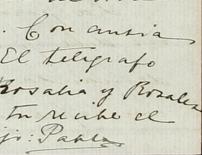 . Con ansia
El telégrafo
Rosalia y Rosales
tn recibe el
jo: Pablo